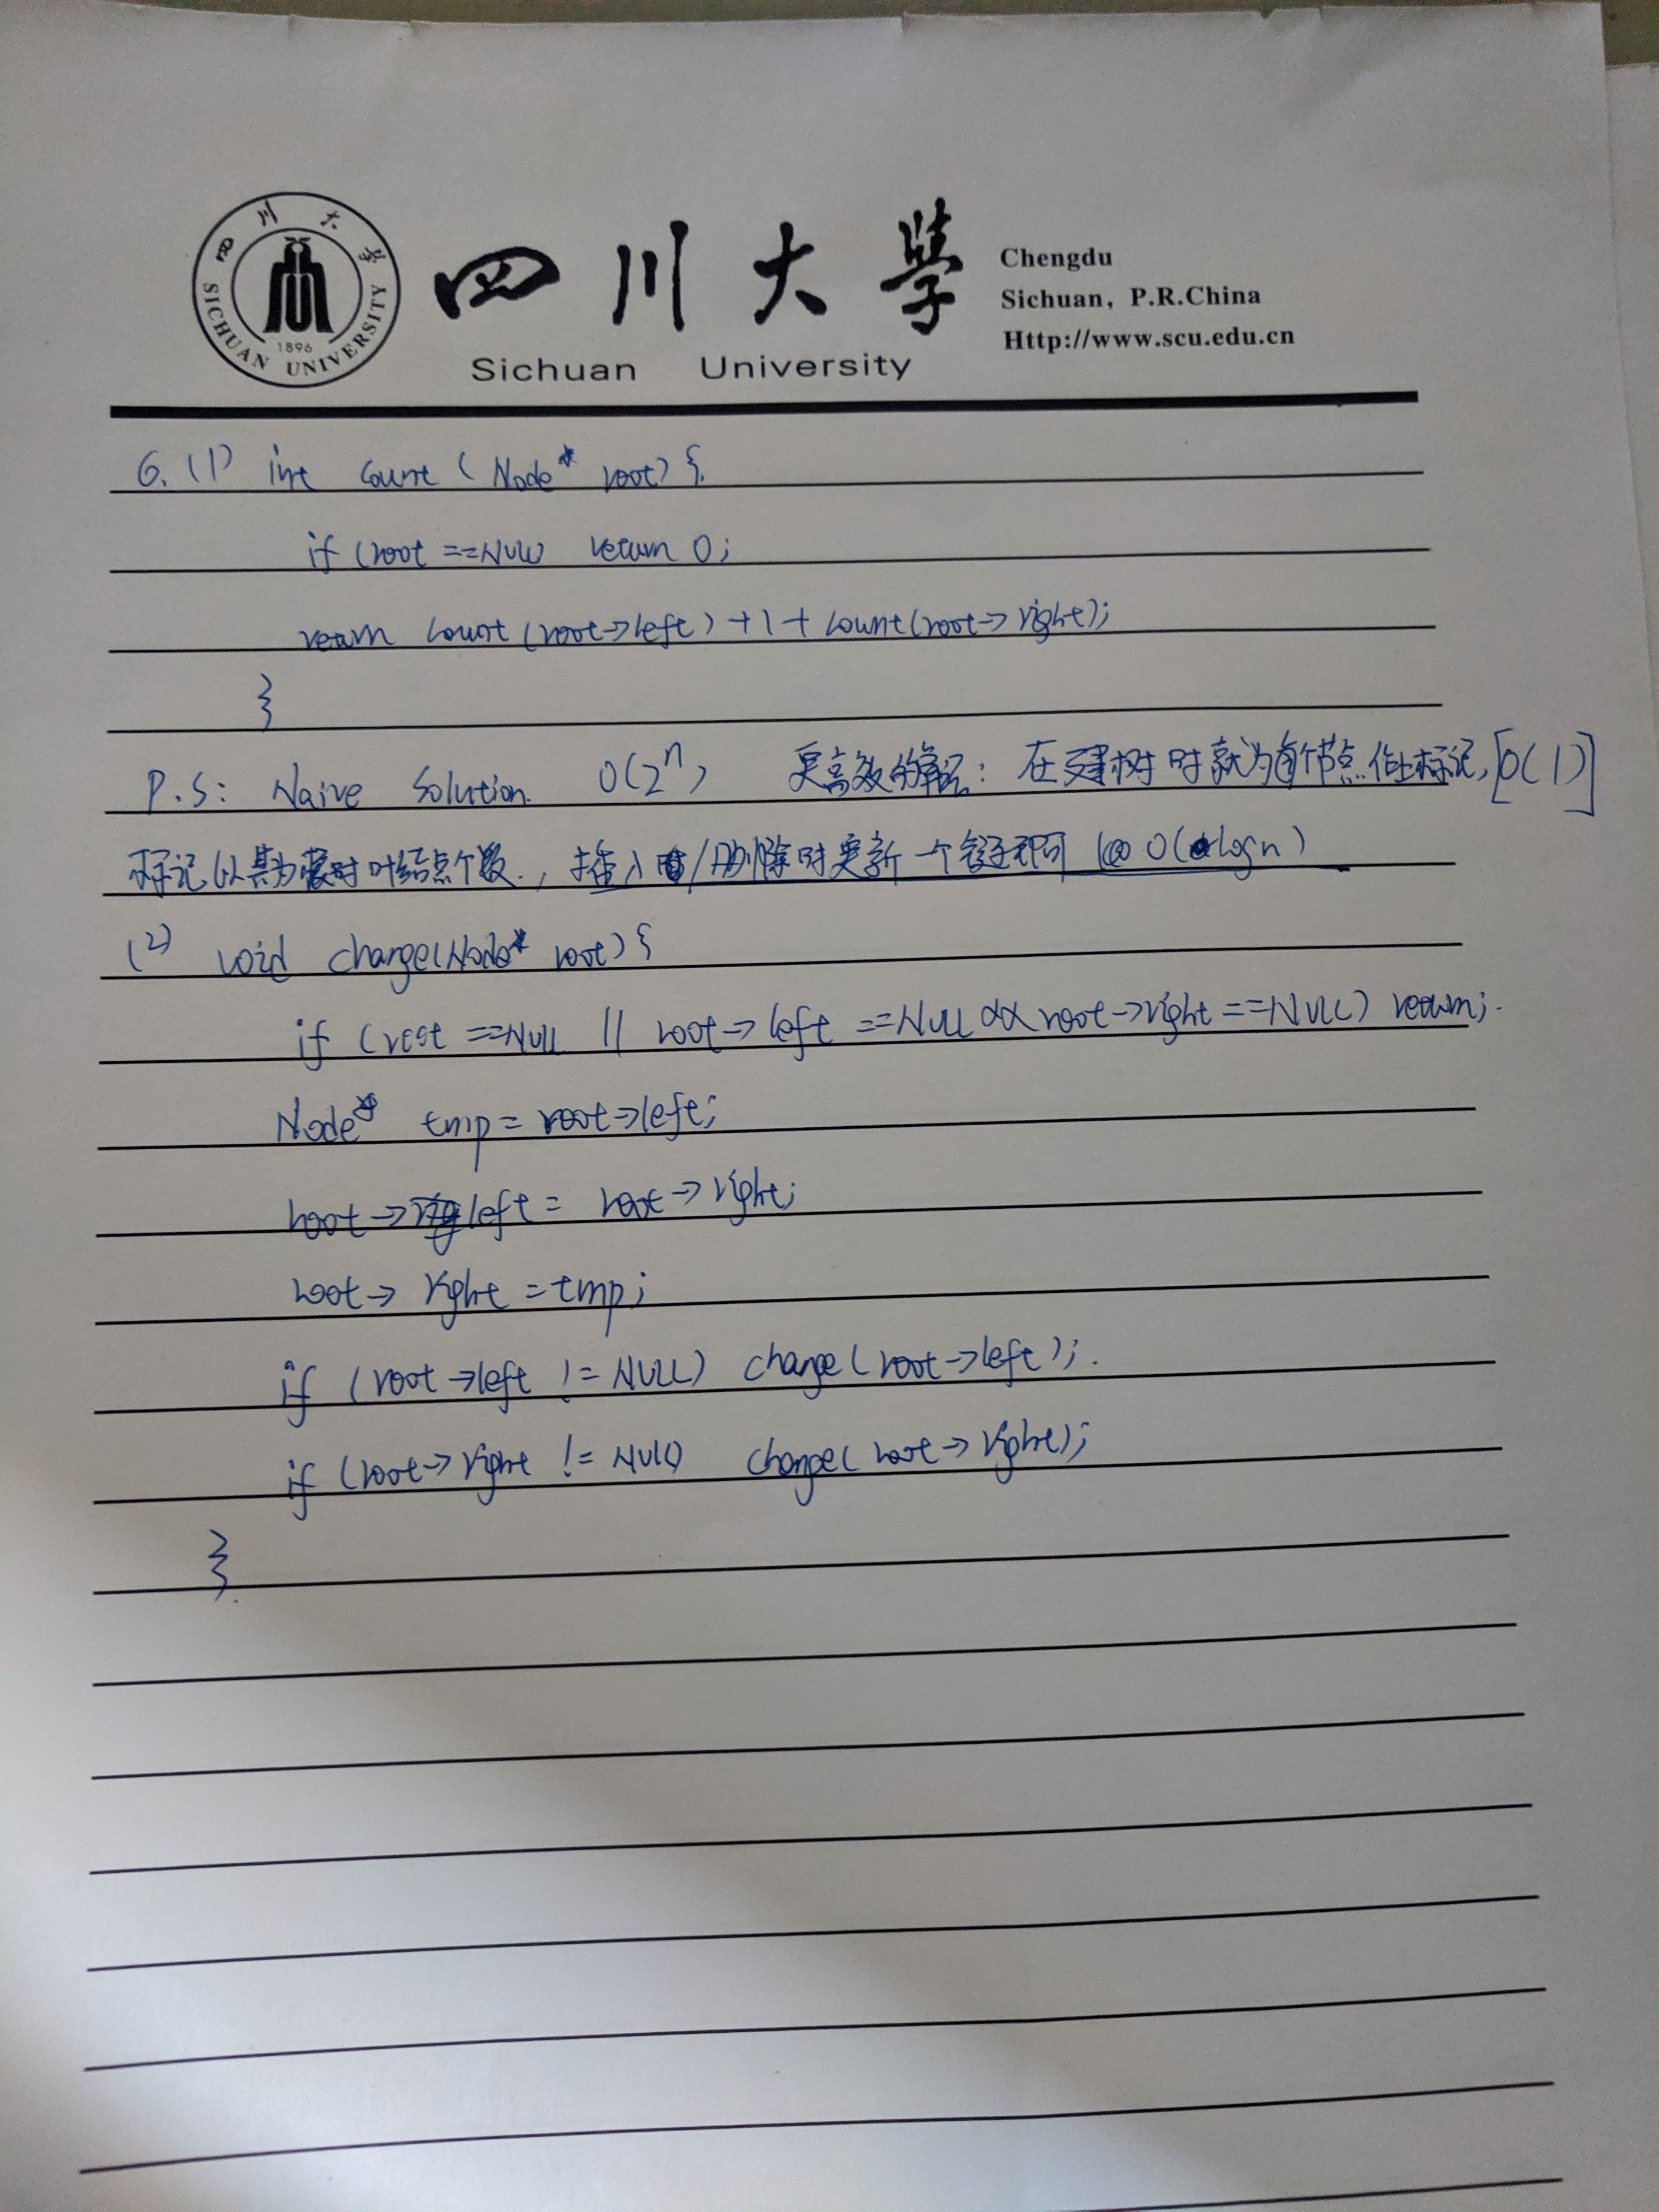 四川大学
SICHUAN UNIVERSITY
1896
四川大學
Sichuan University
Chengdu
Sichuan, P.R.China
Http://www.scu.edu.cn
6. (1) int count (Node* root) {
if (root ==NULL) return 0;
return count (root->left) +1+ count(root->right);
}
P.S: Naive Solution. O(2^n), 更高效的解法: 在建树时就为每个节点作上标记, [O(1)]
标记以其为根时叶结点个数., 插入时/删除时更新一个链即可 O(logn)
(2) void change(Node* root) {
if (root ==NULL || root->left ==NULL && root->right ==NULL) return;
Node* tmp = root->left;
root->left = root->right;
root->right = tmp;
if (root->left != NULL) change(root->left);
if (root->right != NULL) change(root->right);
}